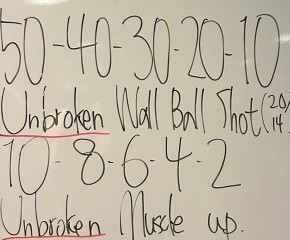 50-40-30-20-10
Unbroken Wall Ball Shot (20/14
10-8-6-4-2
Unbroken Muscle up.